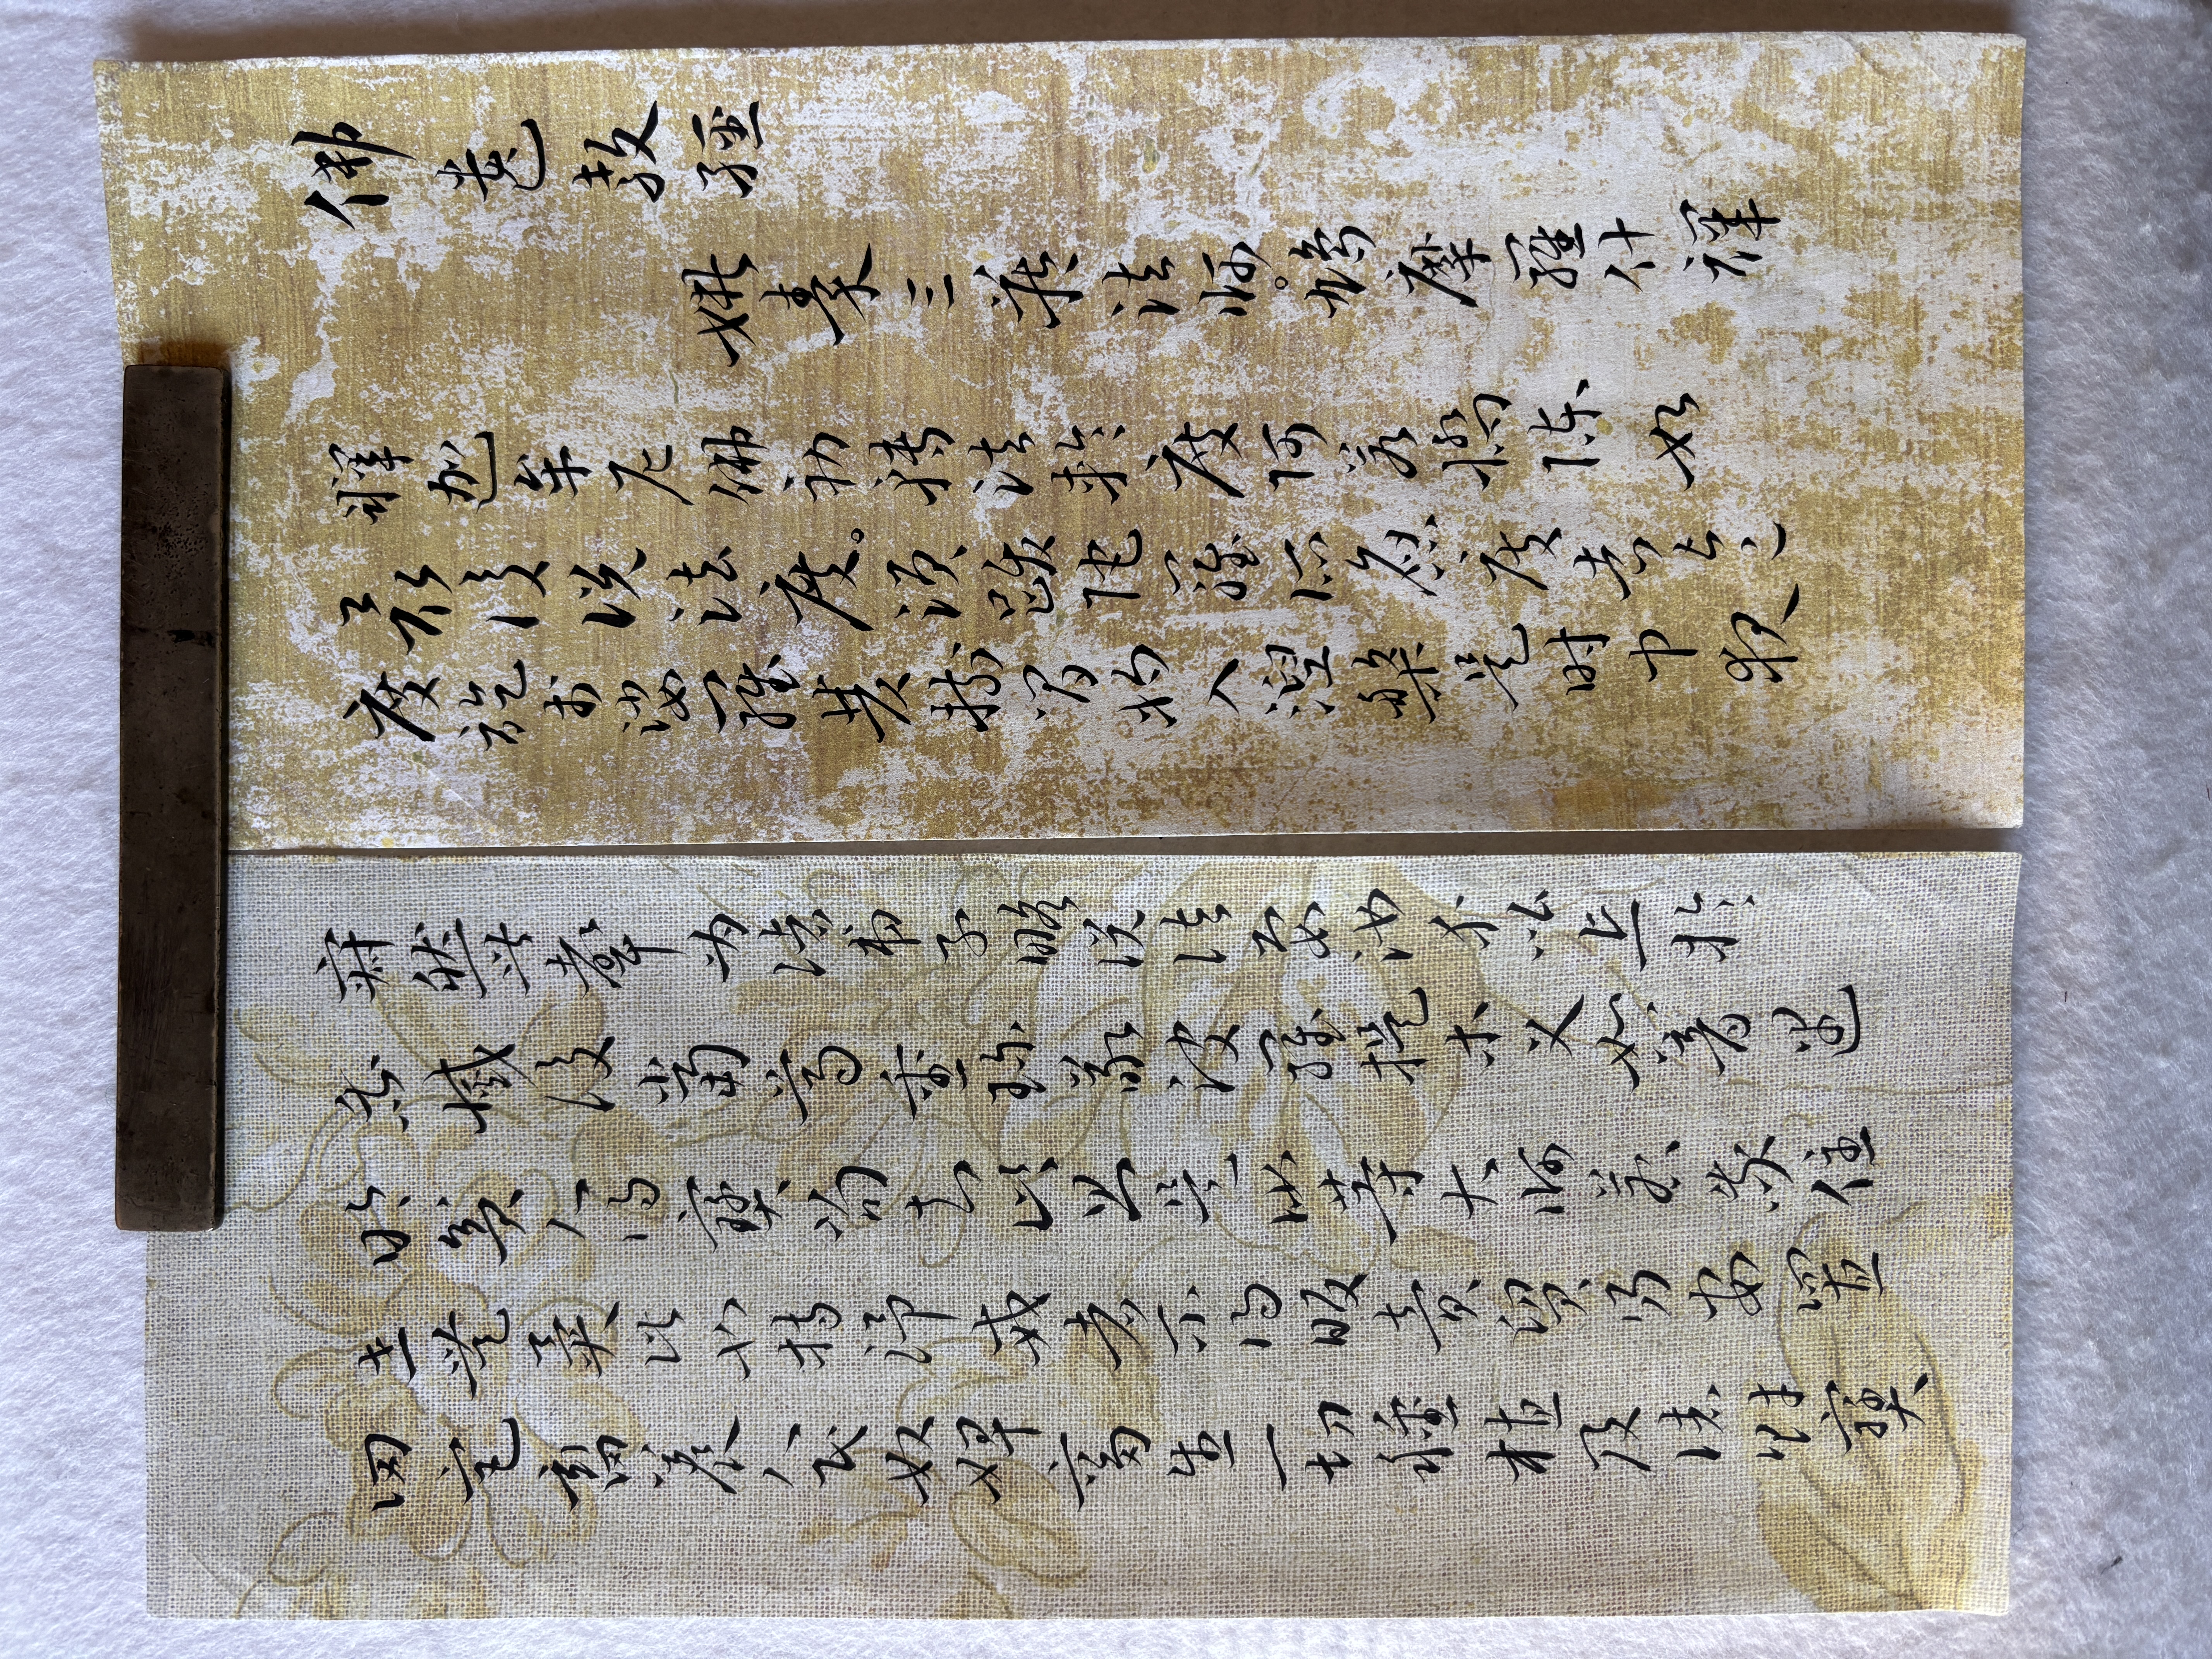 佛遺教經
姚秦三藏法師。鳩摩羅什譯
釋迦牟尼佛初轉法輪度阿若憍陳如
最後說法度。須跋陀羅所應度者皆已
度訖於娑羅雙樹間將入涅槃是時中夜
寂然無聲為諸弟子略說法要汝等比丘於
我滅後當尊重珍敬波羅提木叉如闇遇
明貧人得寶當知此則是汝等大師若我住
世無異此也持淨戒者不得販賣貿易安置
田宅畜養人民奴婢畜生一切種植及諸財寶